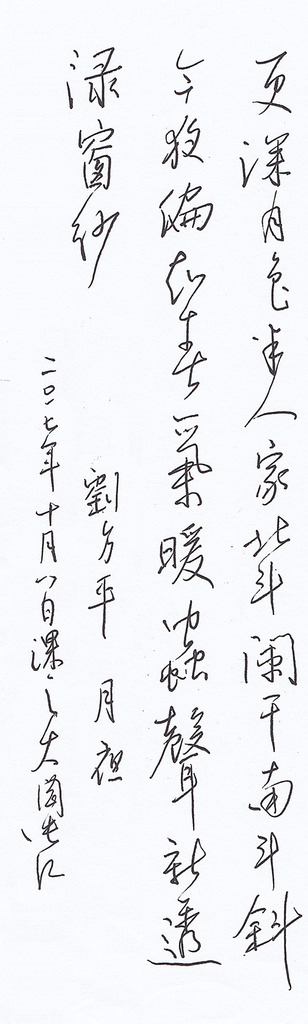 更深月色半人家北斗闌干南斗斜
今夜偏知春氣暖蟲聲新透
淥窗紗
劉方平 月夜
二〇一七年十月八日課之大